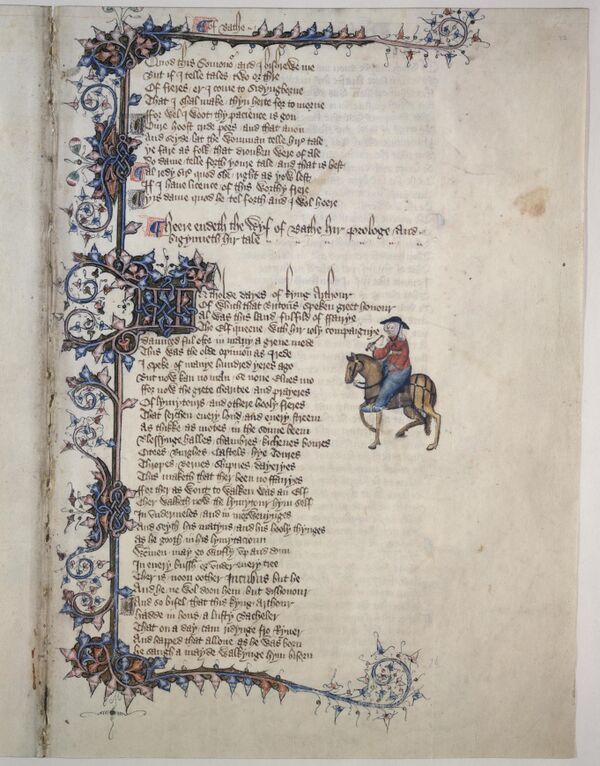 Of Bathe
Quod this Somono and I bishrewe me
But if I telle tales two or thre
Of freres er I come to Sidyngborne
That I shal make thyn herte for to morne
ffor wel I woot thy pacience is gon
Oure hoost cride pees and that anon
And seyde lat the womman telle hir tale
ye fare as folk that dronken were of ale
Do dame telle forth youre tale and that is best
Al redy sire quod she right as yow lest
If I haue licence of this worthy frere
yis dame quod he tel forth and I wol heere
Heere endeth the Wyf of Bathe hir prologe and
bigynneth hir tale
In tholde dayes of kyng Arthour
Of which that Britons speken greet honour
Al was this land fulfild of ffairye
The Elf queene with hir ioly compaignye
Daunced ful ofte in many a grene mede
This was the olde opinion as I rede
I speke of manye hundred yeres ago
But now kan no man se none Elues mo
ffor now the grete charitee and prayeres
Of lymytours and othere hooly freres
That serchen euery lond and euery streem
As thikke as motes in the sonne beem
Blessynge halles chambres kichenes boures
Citees Burghes Castels hye Toures
Thropes Bernes Shipnes Dayeryes
This maketh that ther been no ffairyes
ffor ther as wont to walken was an Elf
Ther walketh now the lymytour hym self
In vndermeles and in morwenynges
And seyth his matyns and his hooly thynges
As he gooth in his lymytacioun
Wommen may go saufly vp and doun
In euery bussh or vnder euery tree
Ther is noon oother Incubus but he
And he ne wol doon hem but dishonour
And so bifel that this kyng Arthour
hadde in hous a lusty Bacheler
That on a day cam ridynge fro Ryuer
And happed that allone as he was born
he saugh a mayde walkynge hym biforn